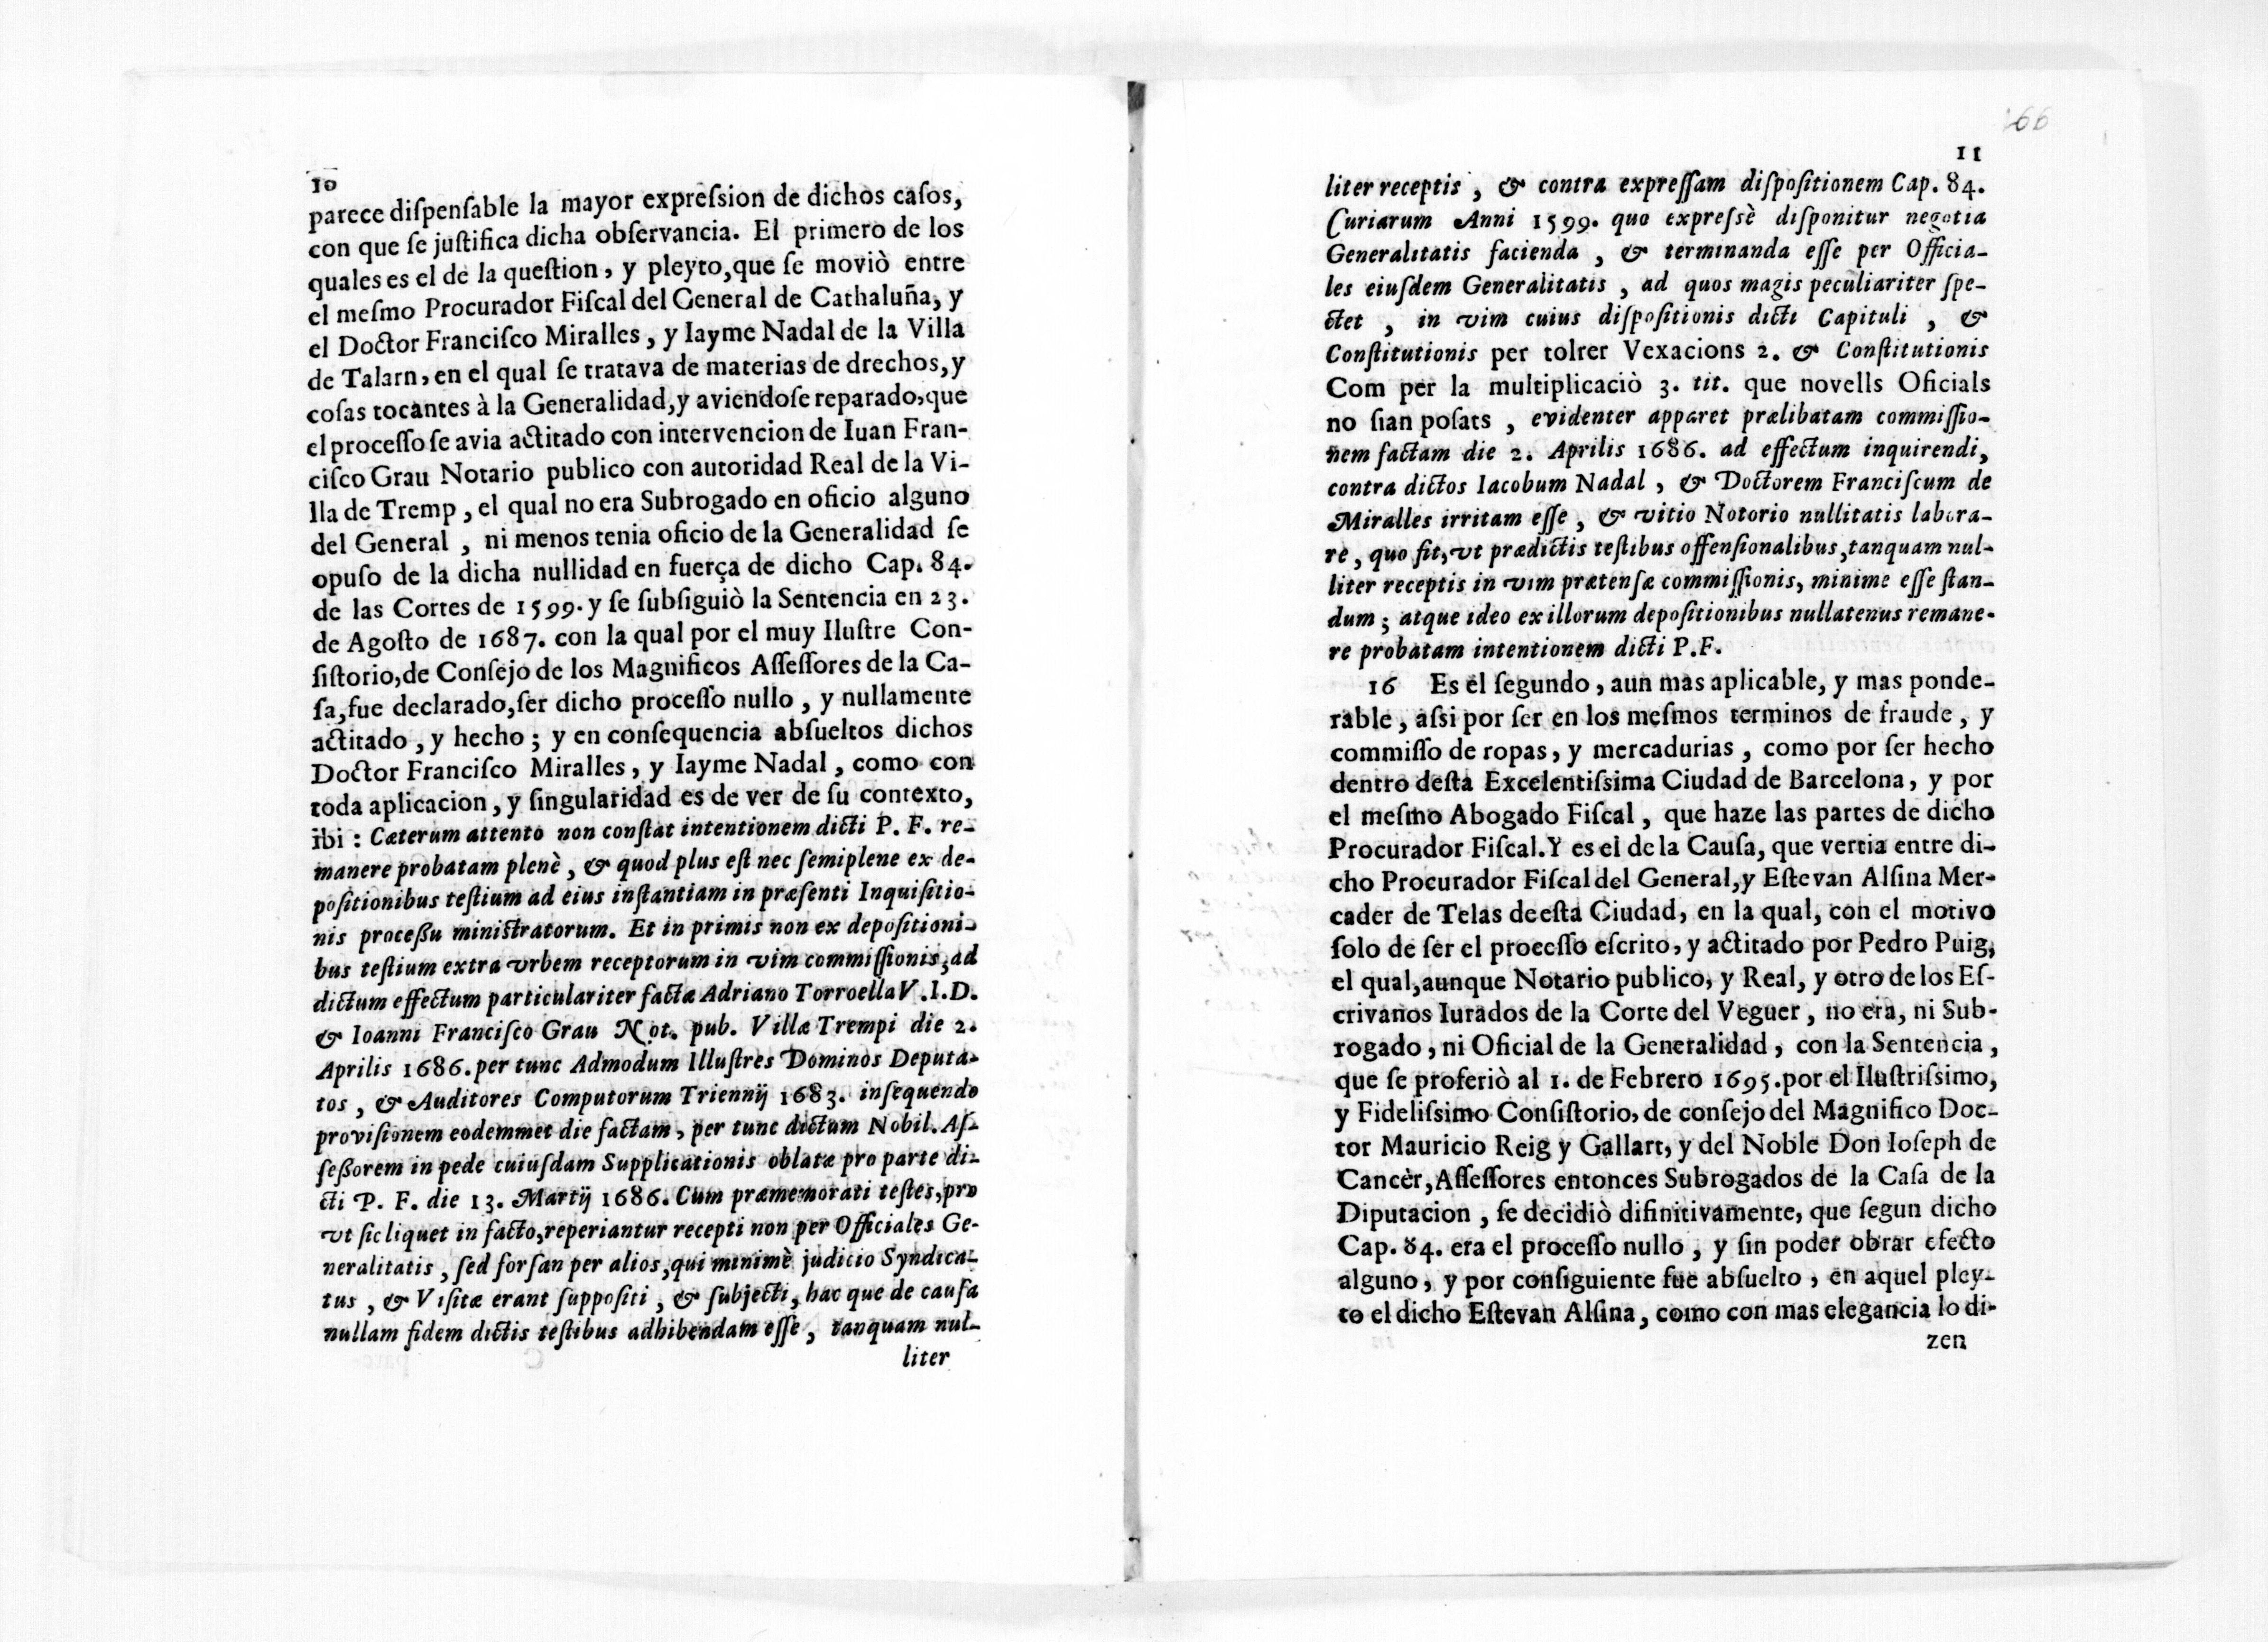 10
parece diſpenſable la mayor expreſsion de dichos caſos,
con que ſe juſtifica dicha obſervancia. El primero de los
quales es el de la queſtion, y pleyto,que ſe moviò entre
el meſmo Procurador Fiſcal del General de Cathaluña, y
el Doctor Franciſco Miralles, y Iayme Nadal de la Villa
de Talarn, en el qual ſe tratava de materias de drechos, y
coſas tocantes à la Generalidad,y aviendoſe reparado,que
el proceſſo ſe avia actitado con intervencion de Iuan Fran-
ciſco Grau Notario publico con autoridad Real de la Vi-
lla de Tremp, el qual no era Subrogado en oficio alguno
del General , ni menos tenia oficio de la Generalidad ſe
opuſo de la dicha nullidad en fuerça de dicho Cap. 84.
de las Cortes de 1599. y ſe ſubſiguiò la Sentencia en 23.
de Agoſto de 1687. con la qual por el muy Iluſtre Con-
ſiſtorio,de Conſejo de los Magnificos Aſſeſſores de la Ca-
ſa,fue declarado,ſer dicho proceſſo nullo , y nullamente
actitado , y hecho ; y en conſequencia abſueltos dichos
Doctor Franciſco Miralles, y Iayme Nadal , como con
toda aplicacion, y ſingularidad es de ver de ſu contexto,
ibi : Cæterum attento non conſtat intentionem dicti P. F. re-
manere probatam plenè , & quod plus eſt nec ſemiplene ex de-
poſitionibus teſtium ad eius inſtantiam in præſenti Inquiſitio-
nis proceßu miniſtratorum. Et in primis non ex depoſitioni-
bus teſtium extra vrbem receptorum in vim commiſſionis,ad
dictum effectum particulariter factæ Adriano Torroella V.I.D.
& Ioanni Franciſco Grau Not. pub. Villæ Trempi die 2.
Aprilis 1686. per tunc Admodum Illuſtres Dominos Deputa-
tos , & Auditores Computorum Triennij 1683. inſequendo
proviſionem eodemmet die factam, per tunc dictum Nobil. Aſ-
ſeßorem in pede cuiuſdam Supplicationis oblatæ pro parte di-
cti P. F. die 13. Martij 1686. Cum præmemorati teſtes,pro
vt ſic liquet in facto,reperiantur recepti non per Officiales Ge-
neralitatis , ſed forſan per alios,qui minimè judicio Syndica-
tus , & Viſitæ erant ſuppoſiti , & ſubjecti, hac que de cauſa
nullam fidem dictis teſtibus adhibendam eſſe, tanquam nul-
liter
166
11
liter receptis , & contra expreſſam diſpoſitionem Cap. 84.
Curiarum Anni 1599. quo expreſsè diſponitur negotia
Generalitatis facienda , & terminanda eſſe per Officia-
les eiuſdem Generalitatis , ad quos magis peculiariter ſpe-
ctet , in vim cuius diſpoſitionis dicti Capituli , &
Conſtitutionis per tolrer Vexacions 2. & Conſtitutionis
Com per la multiplicaciò 3. tit. que novells Oficials
no ſian poſats , evidenter apparet prælibatam commiſſio-
nem factam die 2. Aprilis 1686. ad effectum inquirendi,
contra dictos Iacobum Nadal , & Doctorem Franciſcum de
Miralles irritam eſſe , & vitio Notorio nullitatis labora-
re, quo fit,vt prædictis teſtibus offenſionalibus,tanquam nul-
liter receptis in vim prætenſæ commiſſionis, minime eſſe ſtan-
dum ; atque ideo ex illorum depoſitionibus nullatenus remane-
re probatam intentionem dicti P.F.
16 Es el ſegundo , aun mas aplicable, y mas ponde-
rable , aſsi por ſer en los meſmos terminos de fraude , y
commiſſo de ropas, y mercadurias , como por ſer hecho
dentro deſta Excelentiſsima Ciudad de Barcelona, y por
el meſmo Abogado Fiſcal , que haze las partes de dicho
Procurador Fiſcal.Y es el de la Cauſa, que vertia entre di-
cho Procurador Fiſcal del General,y Eſtevan Alſina Mer-
cader de Telas de eſta Ciudad, en la qual, con el motivo
ſolo de ſer el proceſſo eſcrito, y actitado por Pedro Puig,
el qual,aunque Notario publico, y Real, y otro de los Eſ-
crivanos Iurados de la Corte del Veguer , no era, ni Sub-
rogado , ni Oficial de la Generalidad , con la Sentencia ,
que ſe proferiò al 1. de Febrero 1695.por el Iluſtriſsimo,
y Fideliſsimo Conſiſtorio, de conſejo del Magnifico Doc-
tor Mauricio Reig y Gallart, y del Noble Don Ioſeph de
Cancèr,Aſſeſſores entonces Subrogados de la Caſa de la
Diputacion , ſe decidiò difinitivamente, que ſegun dicho
Cap. 84. era el proceſſo nullo , y ſin poder obrar efecto
alguno , y por conſiguiente fue abſuelto , en aquel pley-
to el dicho Eſtevan Alſina , como con mas elegancia lo di-
zen